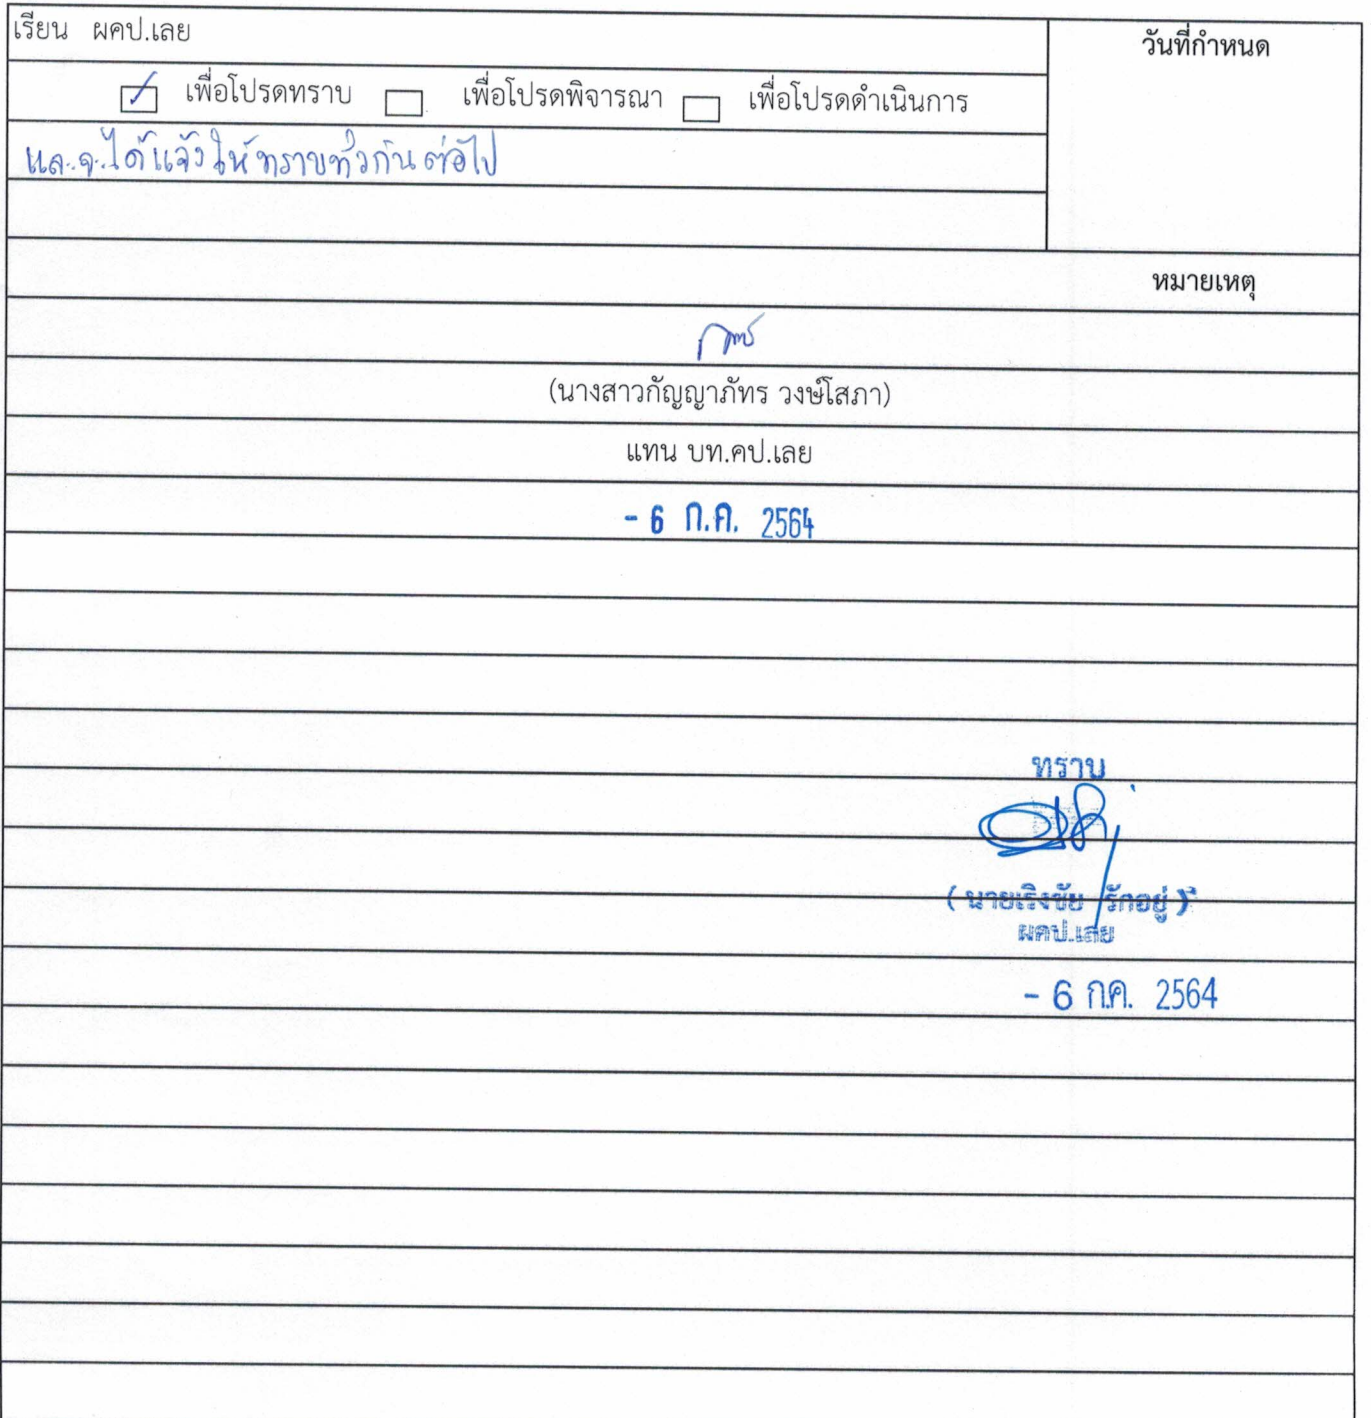 เรียน ผคป.เลย
วันที่กำหนด
เพื่อโปรดทราบ เพื่อโปรดพิจารณา เพื่อโปรดดำเนินการ
และจะได้แจ้งให้ทราบทั่วกันต่อไป
หมายเหตุ
(นางสาวกัญญาภัทร วงษ์โสภา)
แทน บท.คป.เลย
- 6 ก.ค. 2564
ทราบ
( นายเริงชัย รักอยู่ )
ผคป.เลย
- 6 ก.ค. 2564